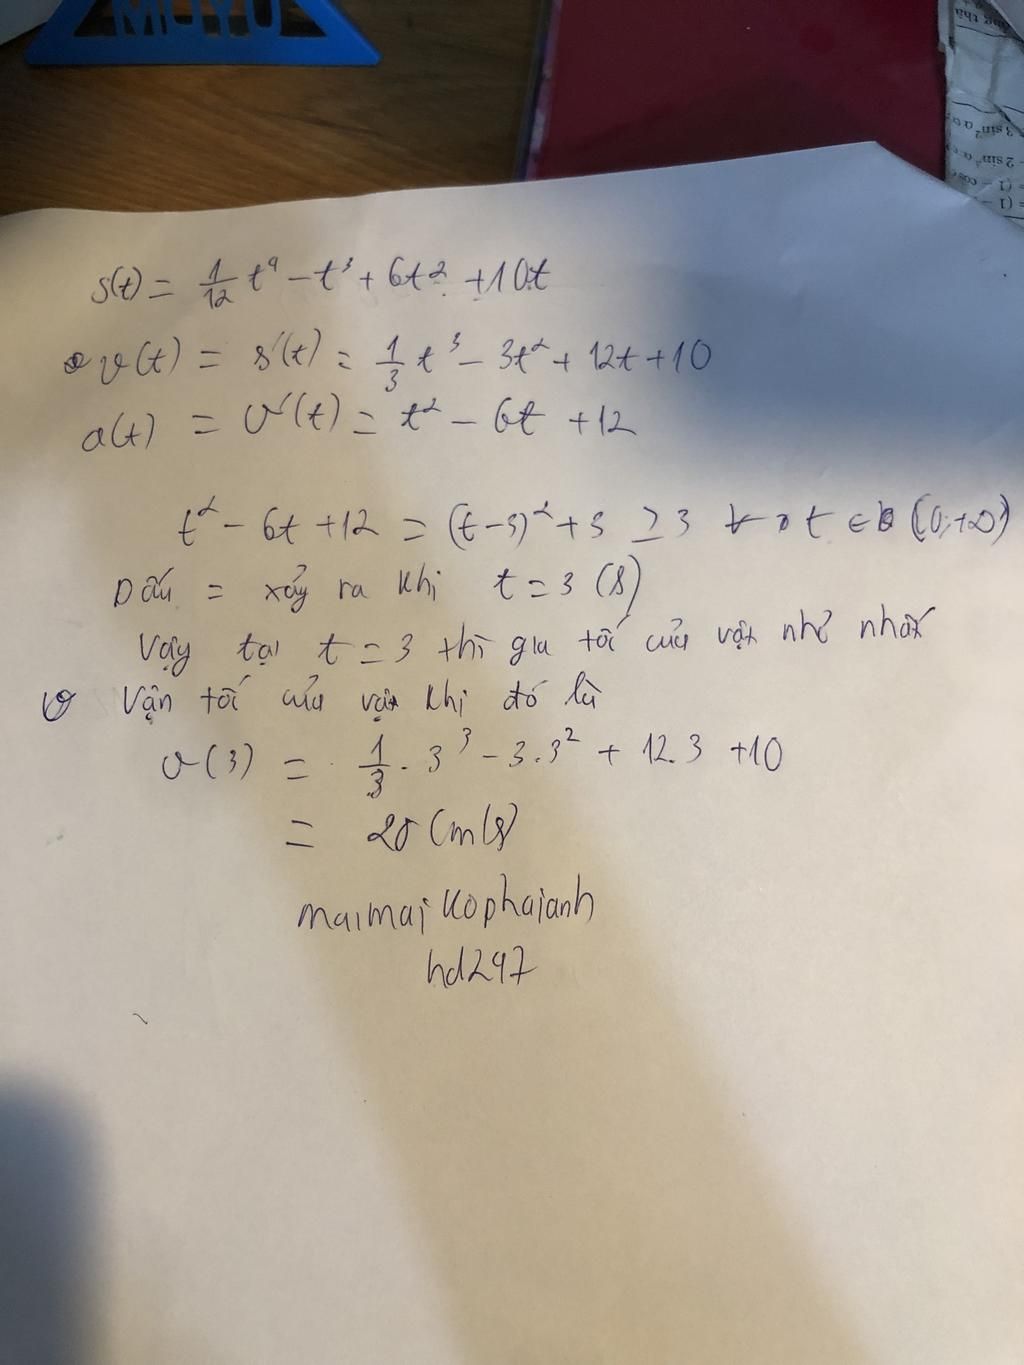 MOYU
3 sin² α
2 sin² α
= (1 − cos
= (1 −
s(t) = 1/12 t⁴ − t³ + 6t² + 10t
v(t) = s'(t) = 1/3 t³ − 3t² + 12t + 10
a(t) = v'(t) = t² − 6t + 12
t² − 6t + 12 = (t − 3)² + 3 ≥ 3 ∀ t ∈ (0; +∞)
Dấu = xảy ra khi t = 3 (s)
Vậy tại t = 3 thì gia tố của vật nhỏ nhất
Vận tố của vật khi đó là
v(3) = 1/3 . 3³ − 3.3² + 12.3 + 10
= 28 (m/s)
maimaikophaianh
hd297